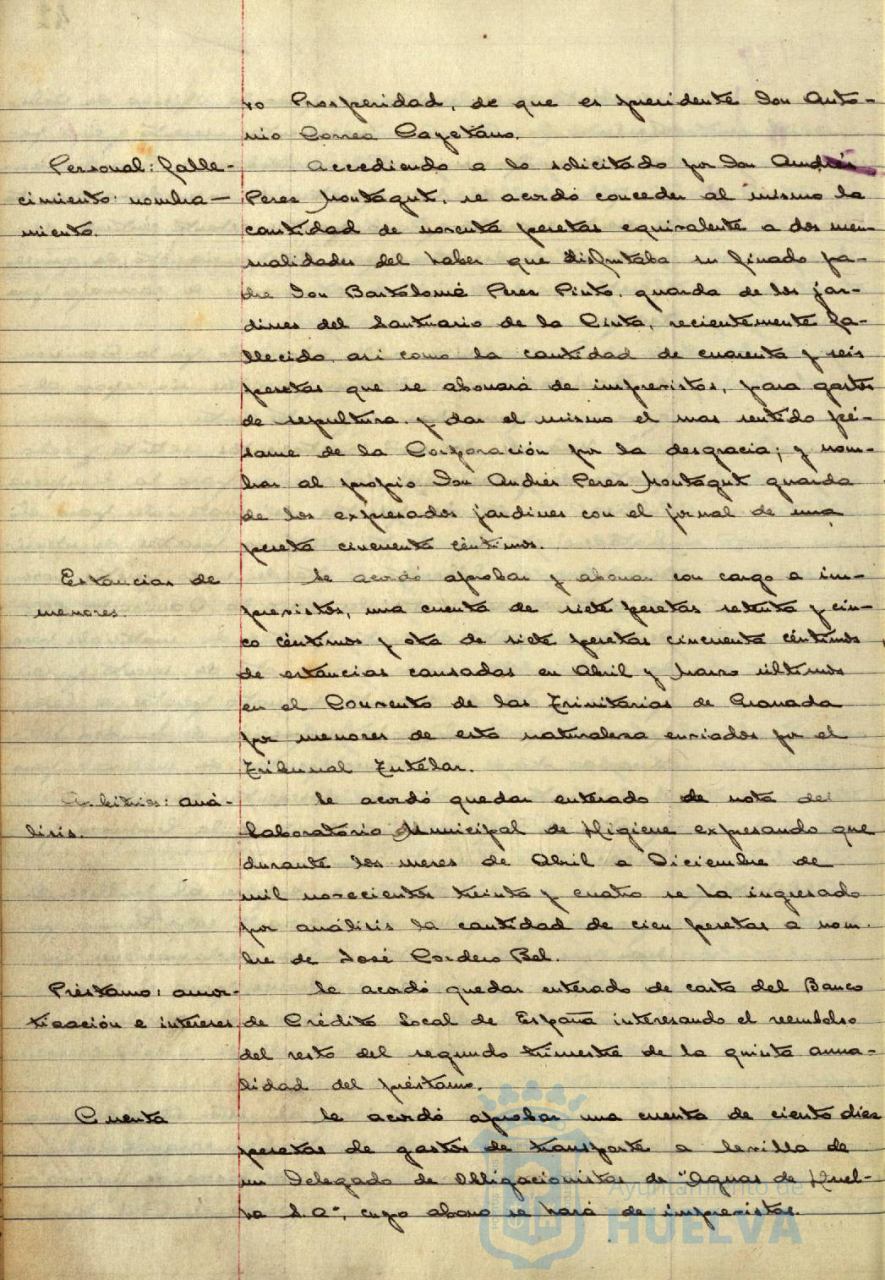 ro Prosperidad, de que es presidente Don Anto-
nio Correa Cayetano.
Personal: falle-
cimiento: nombra-
miento.
Accediendo a lo solicitado por Don Andrés
Perez Montagut, se acordó conceder al mismo la
cantidad de noventa pesetas equivalente a dos men-
sualidades del haber que disfrutaba su finado pa-
dre Don Bartolomé Perez Pinto, guarda de los jar-
dines del Santuario de la Cinta, recientemente fa-
llecido, asi como la cantidad de cuarenta y seis
pesetas que se abonará de imprevistos, para gastos
de sepultura y dar el mismo el mas sentido pé-
same de la Corporación por la desgracia; y nom-
brar al propio Don Andrés Perez Montagut guarda
de los expresados jardines con el jornal de una
peseta cincuenta céntimos.
Estancias de
menores.
Se acordó aprobar y abonar con cargo a im-
previstos, una cuenta de siete pesetas setenta y cin-
co céntimos y otra de siete pesetas cincuenta céntimos
de estancias causadas en Abril y Marzo últimos
en el Convento de las Trinitarias de Granada
por menores de esta naturaleza enviados por el
Tribunal Tutelar.
Arbitrios: aná-
lisis.
Se acordó quedar enterado de nota del
Laboratorio Municipal de Higiene expresando que
durante los meses de Abril a Diciembre de
mil novecientos treinta y cuatro se ha ingresado
por análisis la cantidad de cien pesetas a nom-
bre de José Cordero Bel.
Préstamo: amor-
tización e intereses
Se acordó quedar enterado de carta del Banco
de Crédito Local de España interesando el reembolso
del resto del segundo trimestre de la quinta anua-
lidad del préstamo.
Cuenta
Se acordó aprobar una cuenta de ciento diez
pesetas de gastos de transporte a Sevilla de
un Delegado de Obligacionistas de "Aguas de Huel-
va S.A", cuyo abono se hará de imprevistos.
Ayuntamiento de
HUELVA